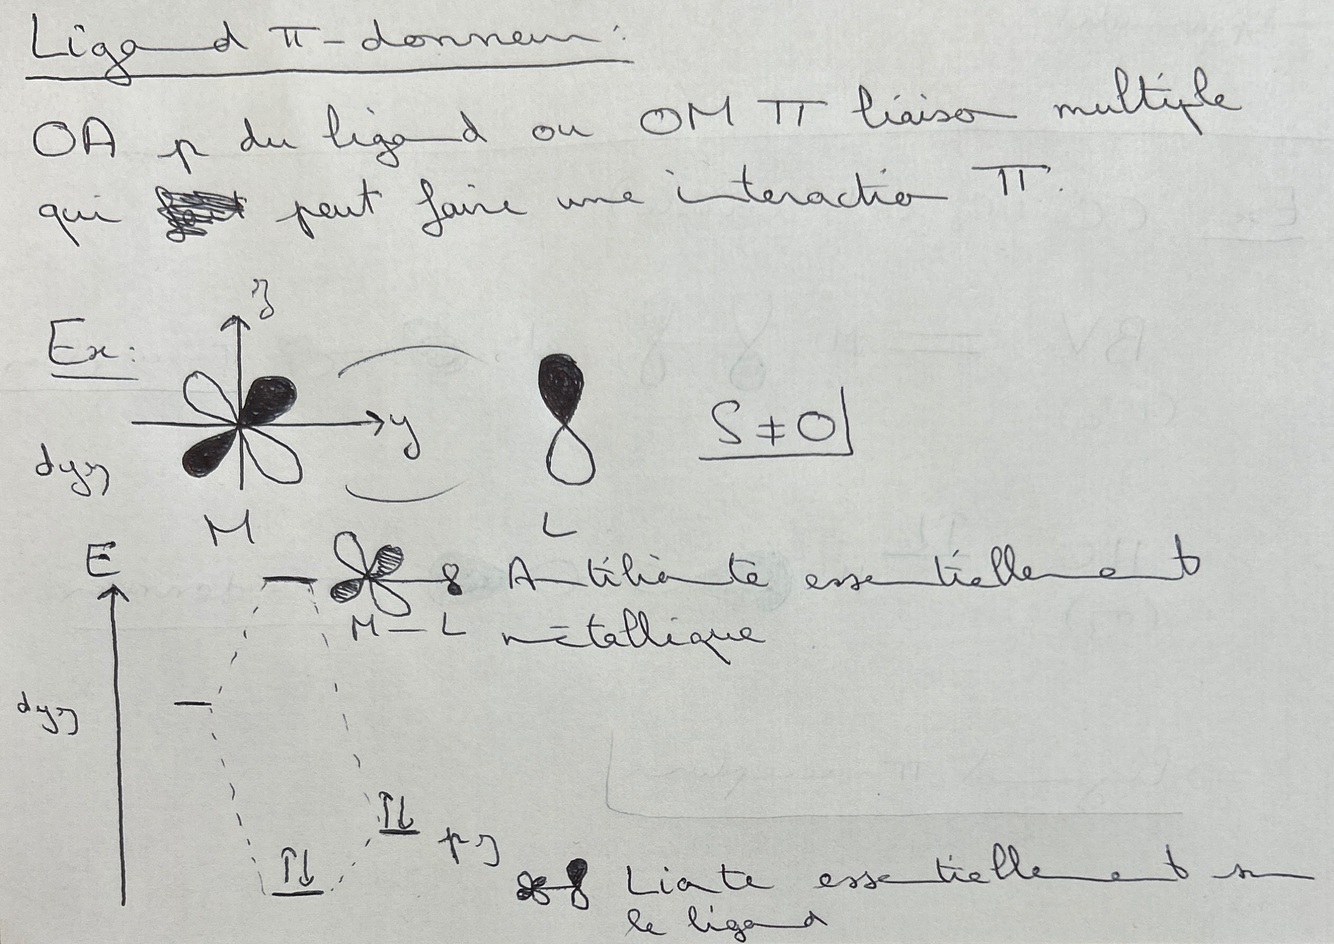 Ligand π-donneur:
OA p du ligand ou OM π liaison multiple
qui peut faire une interaction π.
z
Ex:
y
S ≠ 0
dyz
M
L
E
Antiliante essentiellement
M-L
métallique
dyz
pz
Liante essentiellement sur
le ligand